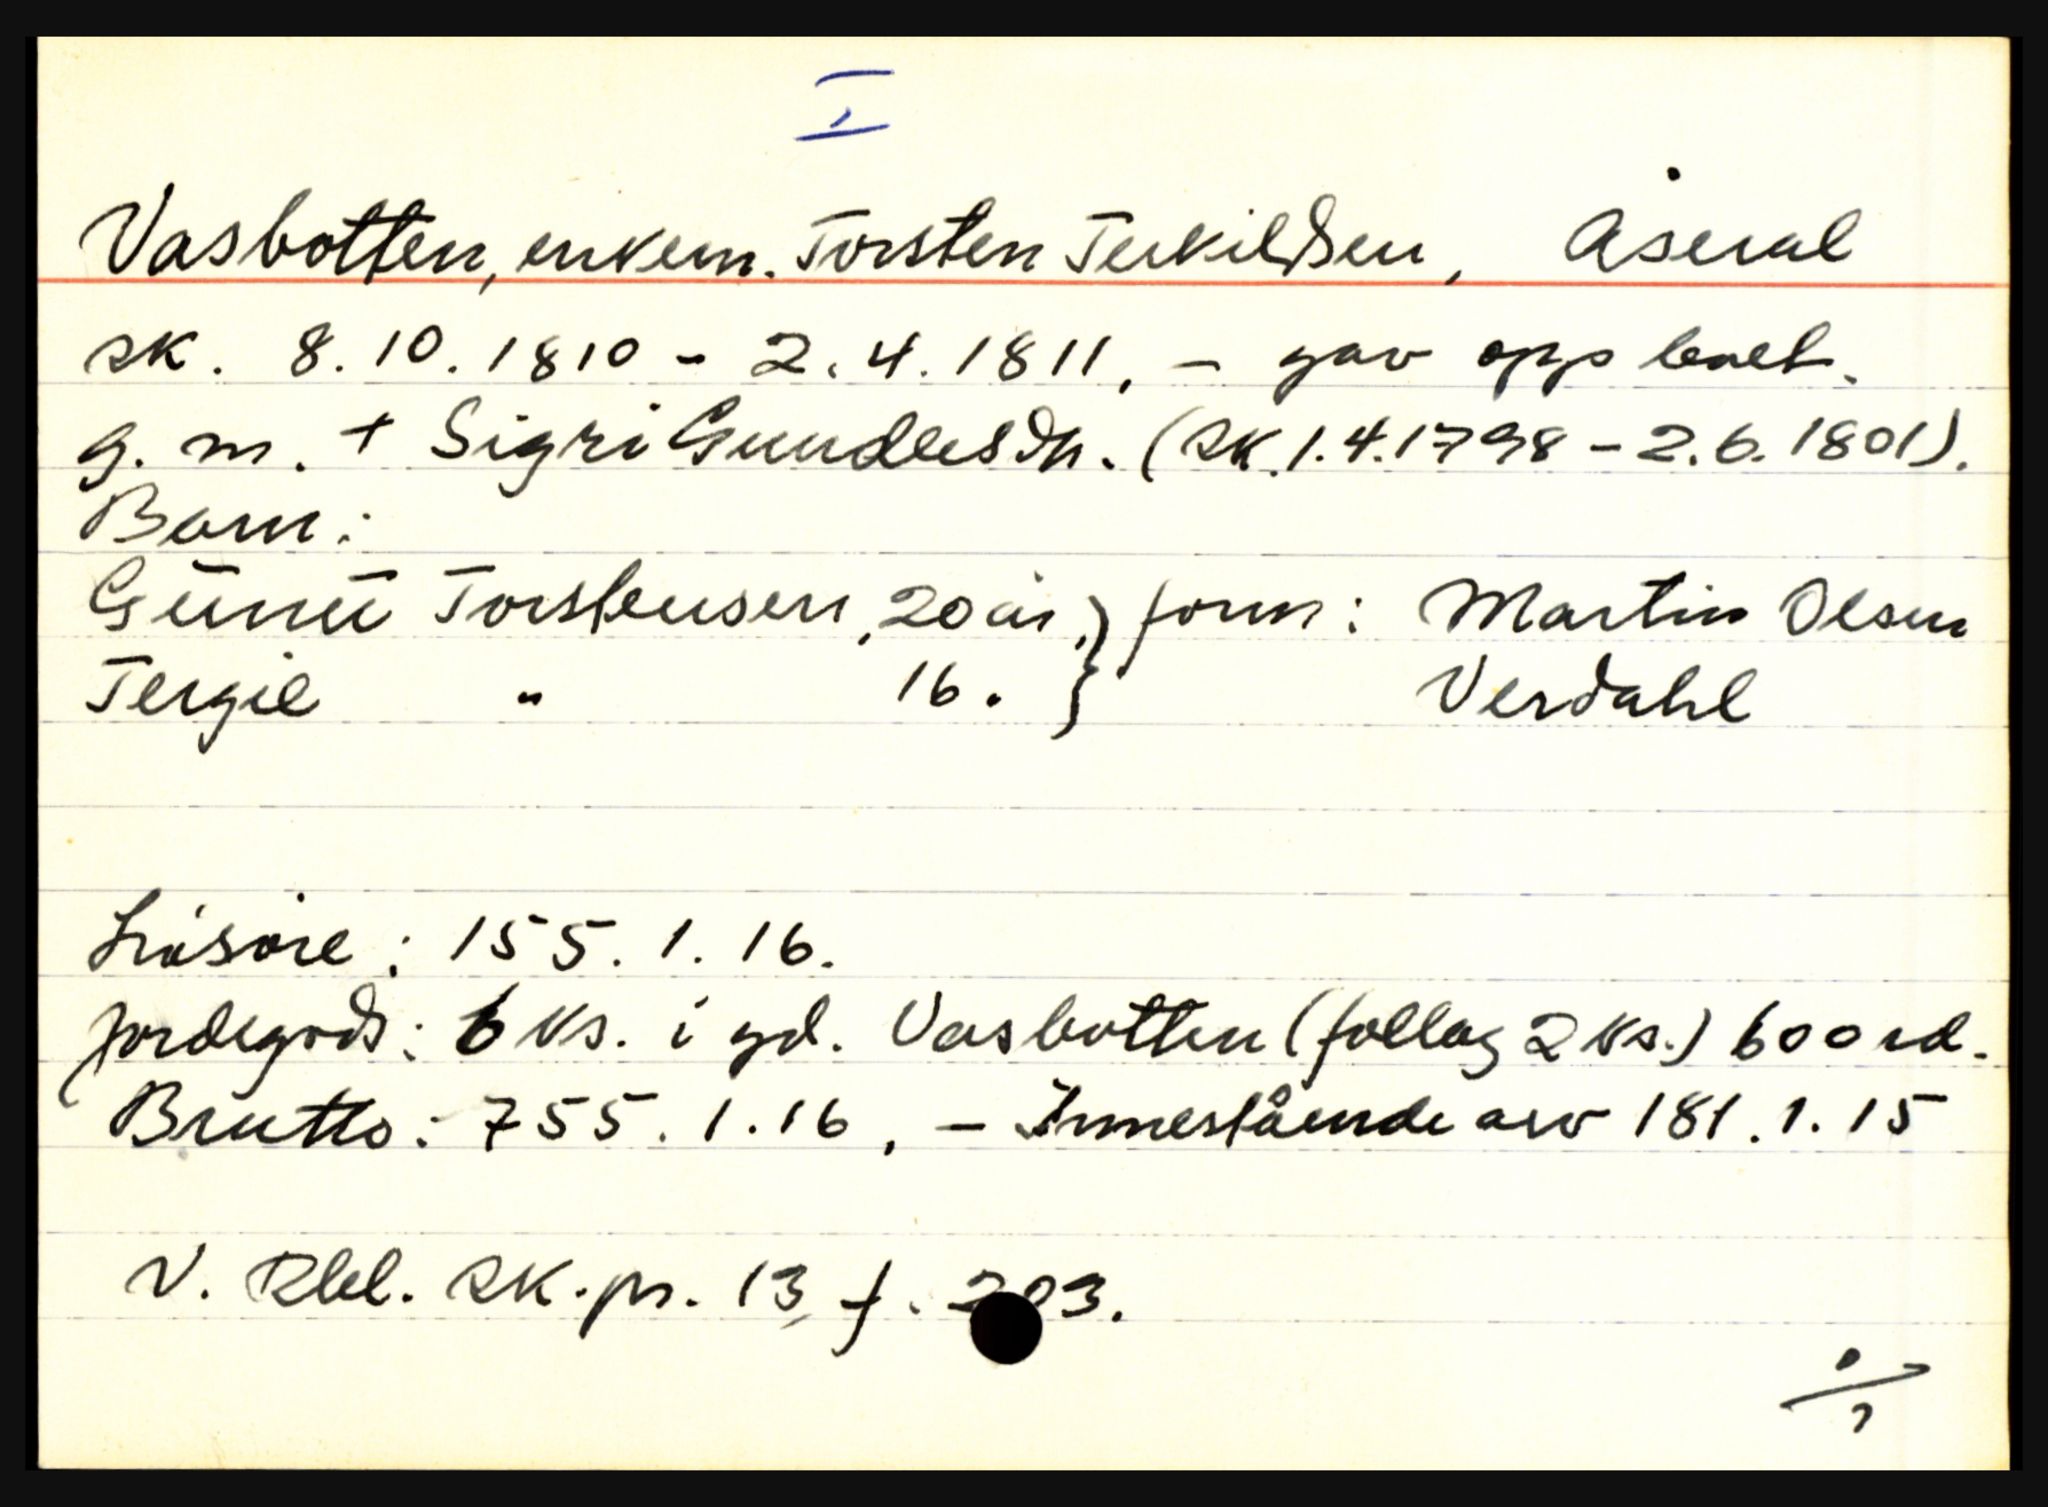 I
Vasbotten, enkem. Torsten Terkildsen, Åseral
sk. 8.10.1810 - 2.4.1811, - gav opp boet.
g. m. + Sigri Gundlesdtr. (sk. 1.4.1798 - 2.6.1801).
Born:
Gunu Torstensen, 20 år, } form: Martin Olsen
Tergie " 16. } Verdahl
Lausøre: 155.1.16.
Jordegods: 6 ks. i gd. Vasbotten (follag 2 ks.) 600 rd.
Brutto: 755.1.16, - Innestående arv 181.1.15
V. Rbl. sk. pr. 13, f. 203.